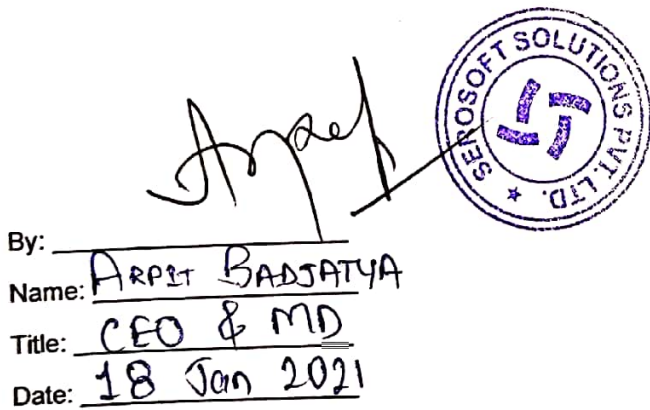 SEROSOFT SOLUTIONS PVT. LTD.
Arpit
By:
Name: ARPIT BADJATYA
Title: CEO & MD
Date: 18 Jan 2021